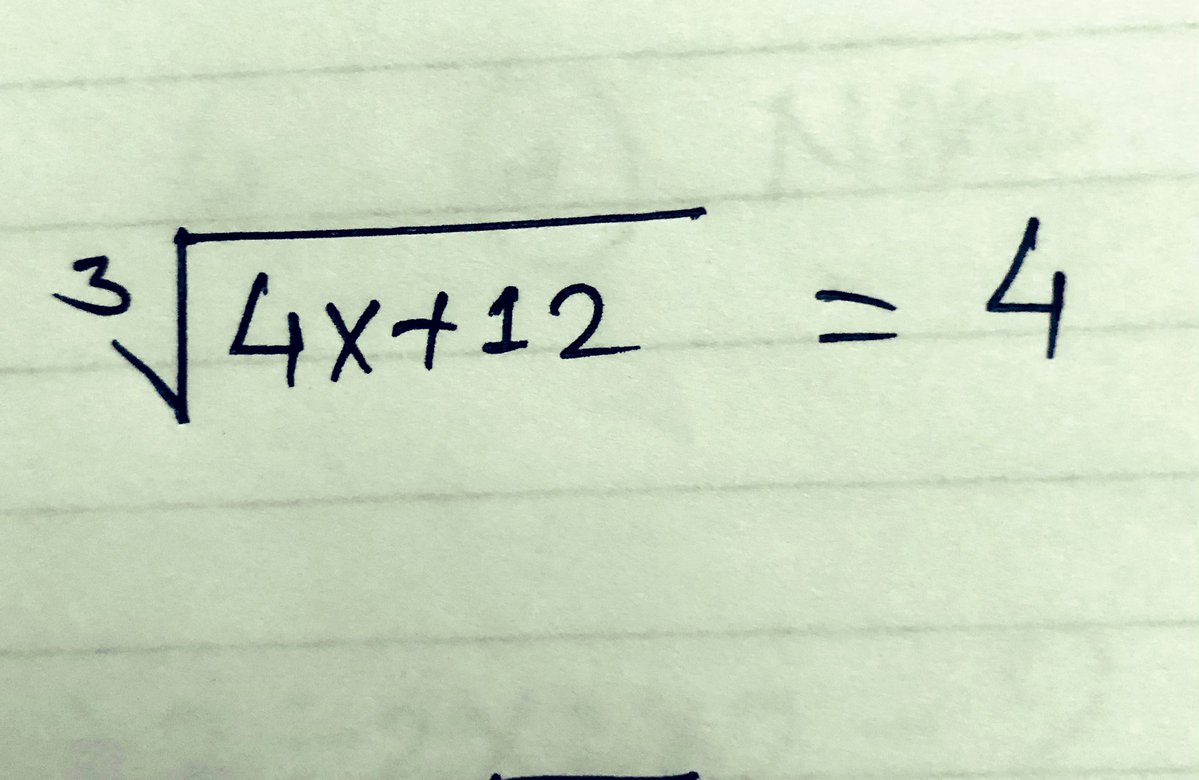 ∛(4x+12) = 4